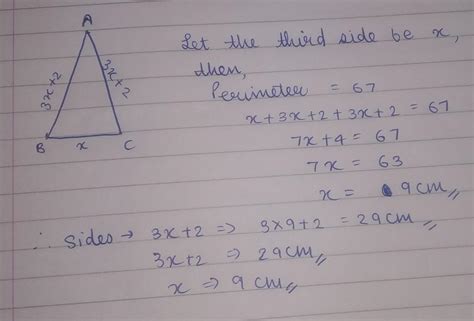 A
3x+2
3x+2
B
x
C
Let the third side be x,
then,
Perimeter = 67
x+3x+2+3x+2 = 67
7x+4 = 67
7x = 63
x = 9 cm
∴ sides → 3x+2 ⇒ 3x9+2 = 29 cm
3x+2 ⇒ 29 cm
x ⇒ 9 cm